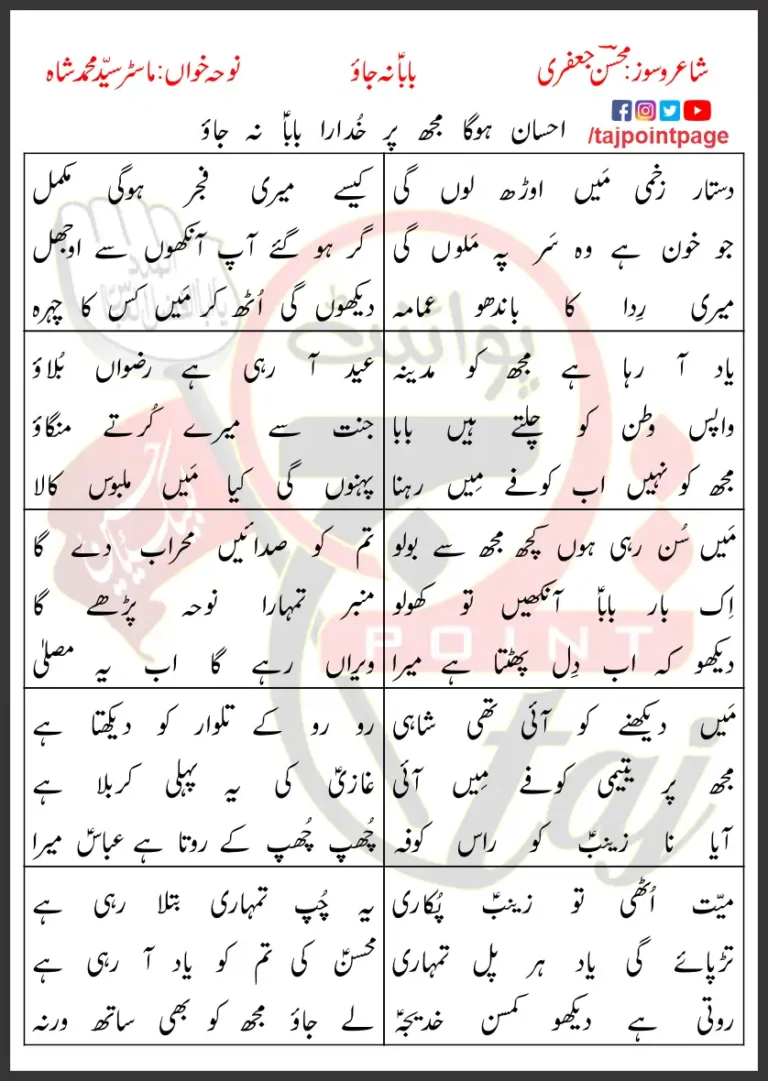 شاعر و سوز: محسنؔ جعفری
باباؑ نہ جاؤ
نوحہ خواں: ماسٹر سیّد محمد شاہ
/tajpointpage
احسان ہوگا مجھ پر خُدارا باباؑ نہ جاؤ
دستار زخمی مَیں اوڑھ لوں گی
جو خون ہے وہ سَر پہ مَلوں گی
میری رِدا کا باندھو عمامہ
کیسے میری فجر ہوگی مکمل
گر ہو گئے آپ آنکھوں سے اوجھل
دیکھوں گی اُٹھ کر مَیں کس کا چہرہ
یاد آ رہا ہے مجھ کو مدینہ
واپس وطن کو چلتے ہیں بابا
مجھ کو نہیں اب کوفے مِیں رہنا
عید آ رہی ہے رضواں بُلاؤ
جنت سے میرے کُرتے منگاؤ
پہنوں گی کیا مَیں ملبوس کالا
مَیں سُن رہی ہوں کچھ مجھ سے بولو
اِک بار باباؑ آنکھیں تو کھولو
دیکھو کہ اب دِل پھٹتا ہے میرا
تم کو صدائیں محراب دے گا
منبر تمہارا نوحہ پڑھے گا
ویراں رہے گا اب یہ مصلیٰ
مَیں دیکھنے کو آئی تھی شاہی
مجھ پر یتیمی کوفے مِیں آئی
آیا نا زینبؑ کو راس کوفہ
رو رو کے تلوار کو دیکھتا ہے
غازیؑ کی یہ پہلی کربلا ہے
چُھپ چُھپ کے روتا ہے عباسؑ میرا
میّت اُٹھی تو زینبؑ پُکاری
تڑپائے گی یاد ہر پل تمہاری
روتی ہے دیکھو کمسن خدیجہؑ
یہ چُپ تمہاری بتلا رہی ہے
محسنؑ کی تم کو یاد آ رہی ہے
لے جاؤ مجھ کو بھی ساتھ ورنہ
پوائنٹ
POINT
taj